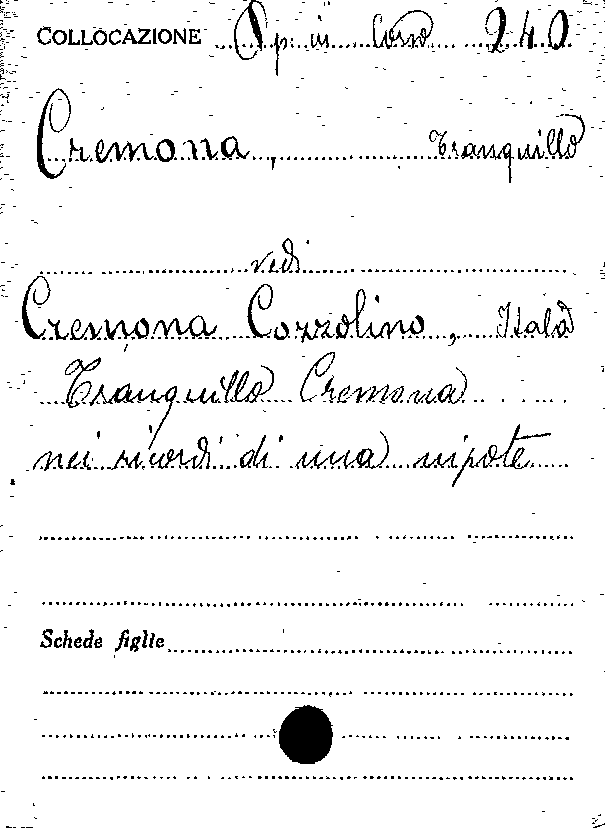 COLLOCAZIONE Op. in Corso 240
Cremona, Tranquillo
vedi
Cremona Cozzolino, Itala
Tranquillo Cremona
nei ricordi di una nipote
Schede figlie